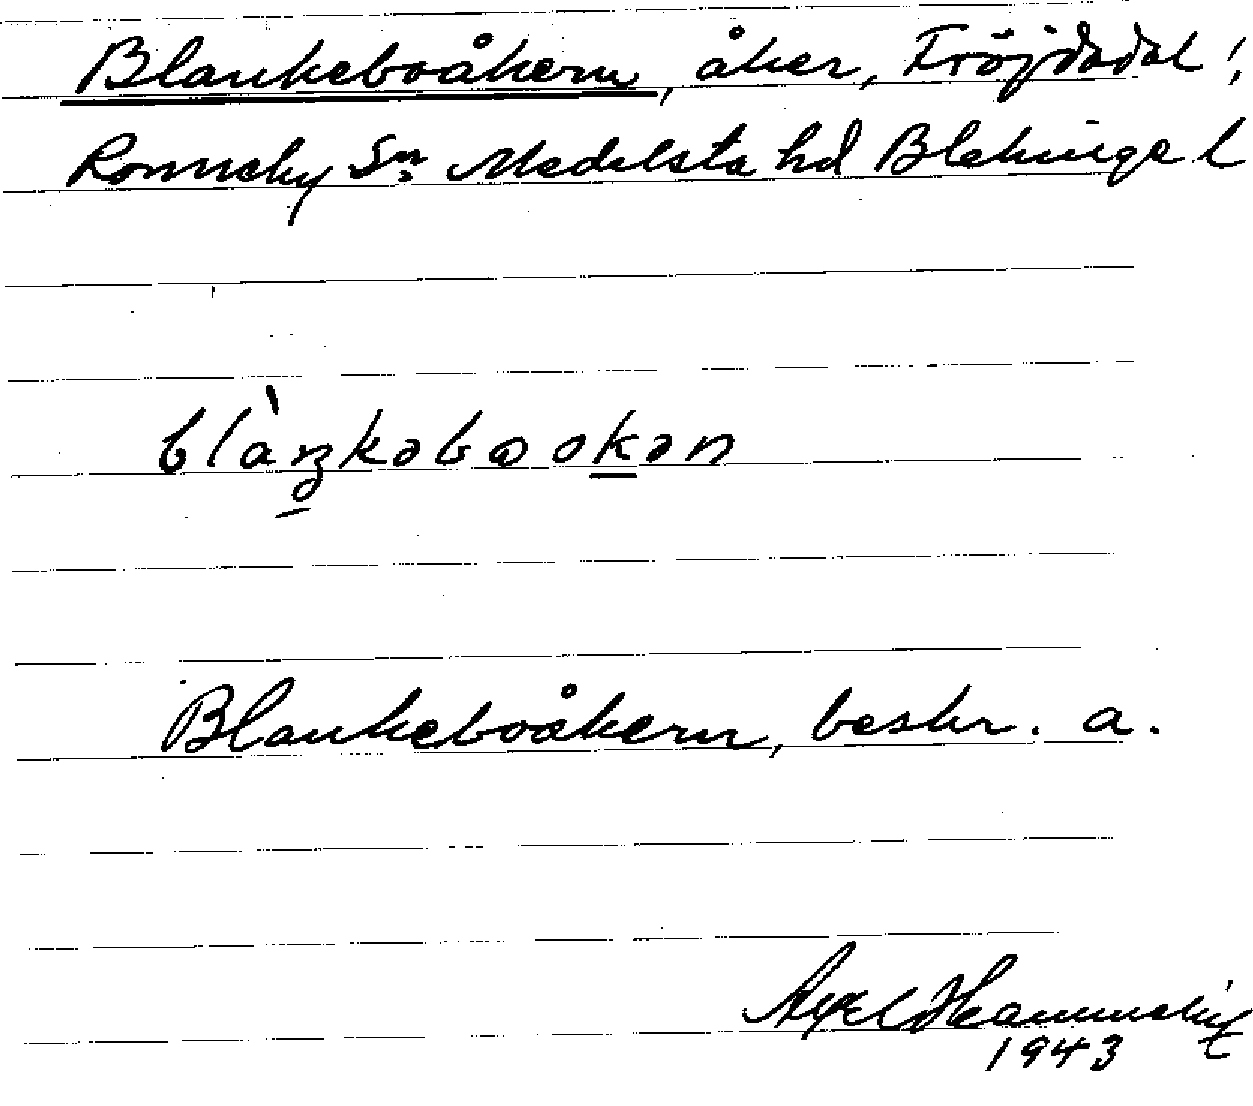 Blankeboåkern, åker, Fröjdadal!,
Ronneby Sn Medelsta hd Blekinge l
blàŋkəbɷokən
Blankeboåkern, beskr. a.
Axel
1943